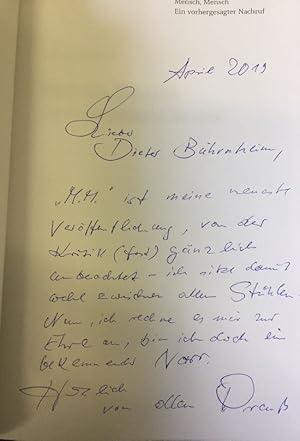 Mensch, Mensch
Ein vorhergesagter Nachruf
April 2019
Lieber
Dieter
"M.M." ist meine neueste
Veröffentlichung, von der
Kritik (fast) gänzlich
unbeachtet – ich sitze damit
wohl zwischen allen Stühlen.
Nun, ich rechne es mir zur
Ehre an, bin ich doch ein
bekennender Narr.
Herzlich
vom ollen